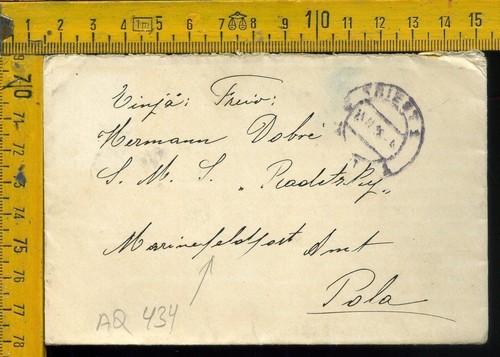 1 2 3 4 5 6 7 8 9 10 11 12 13 14 15
1m
70 71 72 73 74 75 76 77 78
TRIEST
Einjä: Freiw:
Hermann Dobré
S. M. S. „Radetzky"
Marinefeldpost Amt
Pola
AQ 434